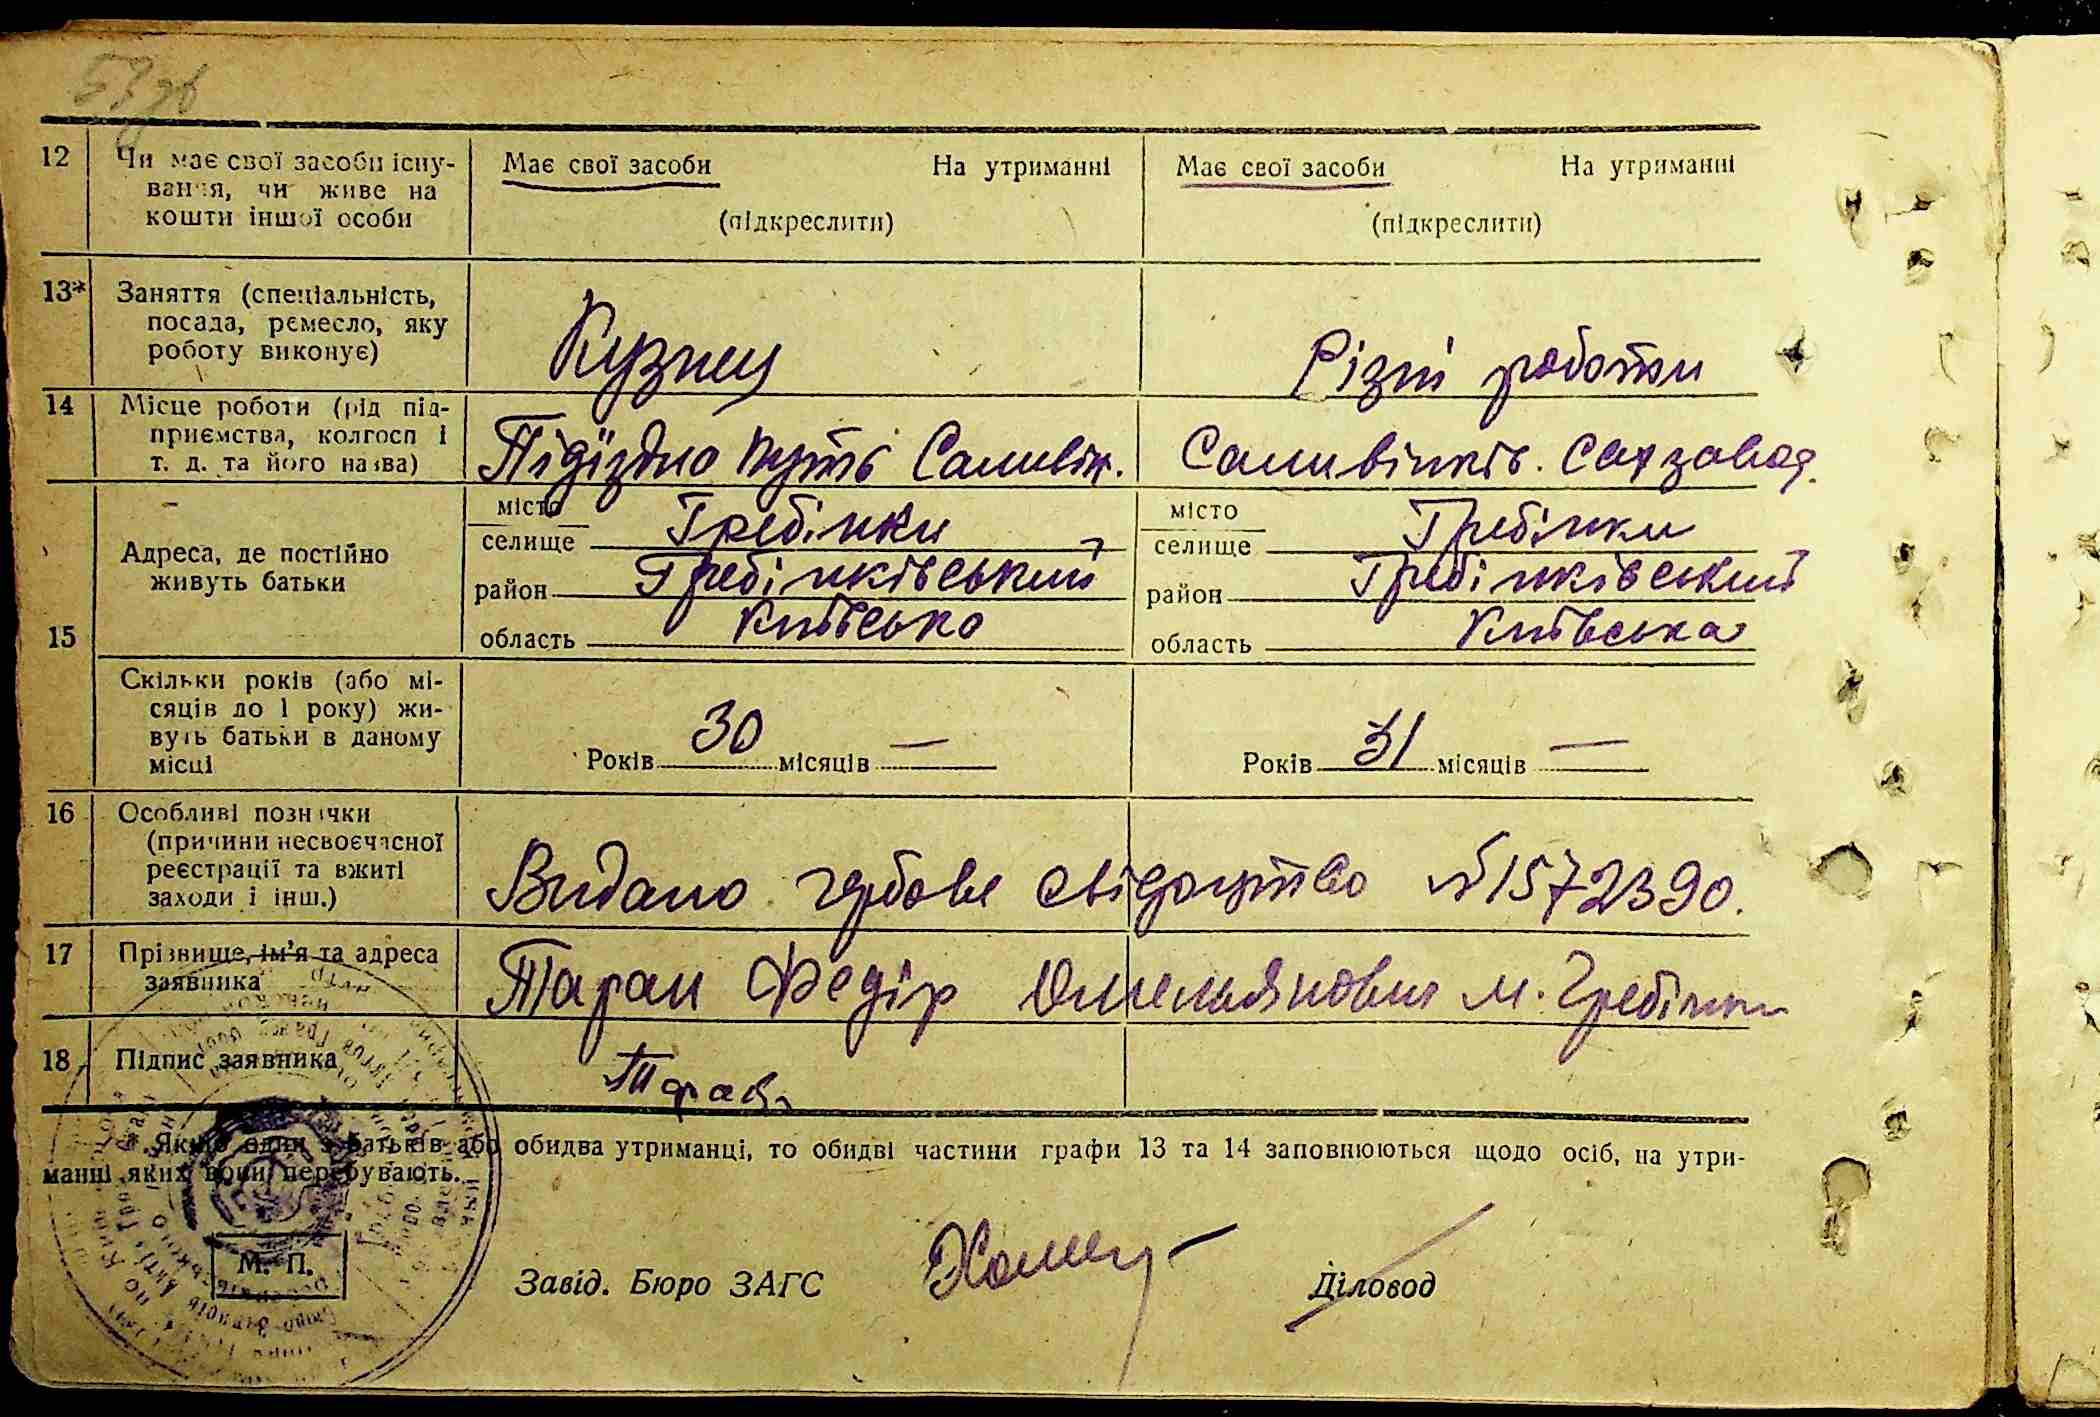 53 зв
12 Чи має свої засоби існу-
вання, чи живе на
кошти іншої особи
Має свої засоби На утриманні
(підкреслити)
Має свої засоби На утриманні
(підкреслити)
13* Заняття (спеціальність,
посада, ремесло, яку
роботу виконує)
Кузнец
Різні роботи
14 Місце роботи (рід під-
приємства, колгосп і
т. д. та його назва)
Підїздно путь Саливін.
Саливінків. Сахзавод.
15
Адреса, де постійно
живуть батьки
місто
селище Гребінки
район Гребінківський
область Київська
місто
селище Гребінки
район Гребінківський
область Київська
Скільки років (або мі-
сяців до 1 року) жи-
вуть батьки в даному
місці
Років 30 місяців —
Років 31 місяців —
16 Особливі познічки
(причини несвоєчасної
реєстрації та вжиті
заходи і інш.)
Видано гербове свідоцтво №1572390.
17 Прізвище, ім'я та адреса
заявника
Таран Федір Омельянович м. Гребінки
18 Підпис заявника
Таран
* Якщо один з батьків або обидва утриманці, то обидві частини графи 13 та 14 заповнюються щодо осіб, на утри-
манні яких вони перебувають.
М. П.
Завід. Бюро ЗАГС
Діловод